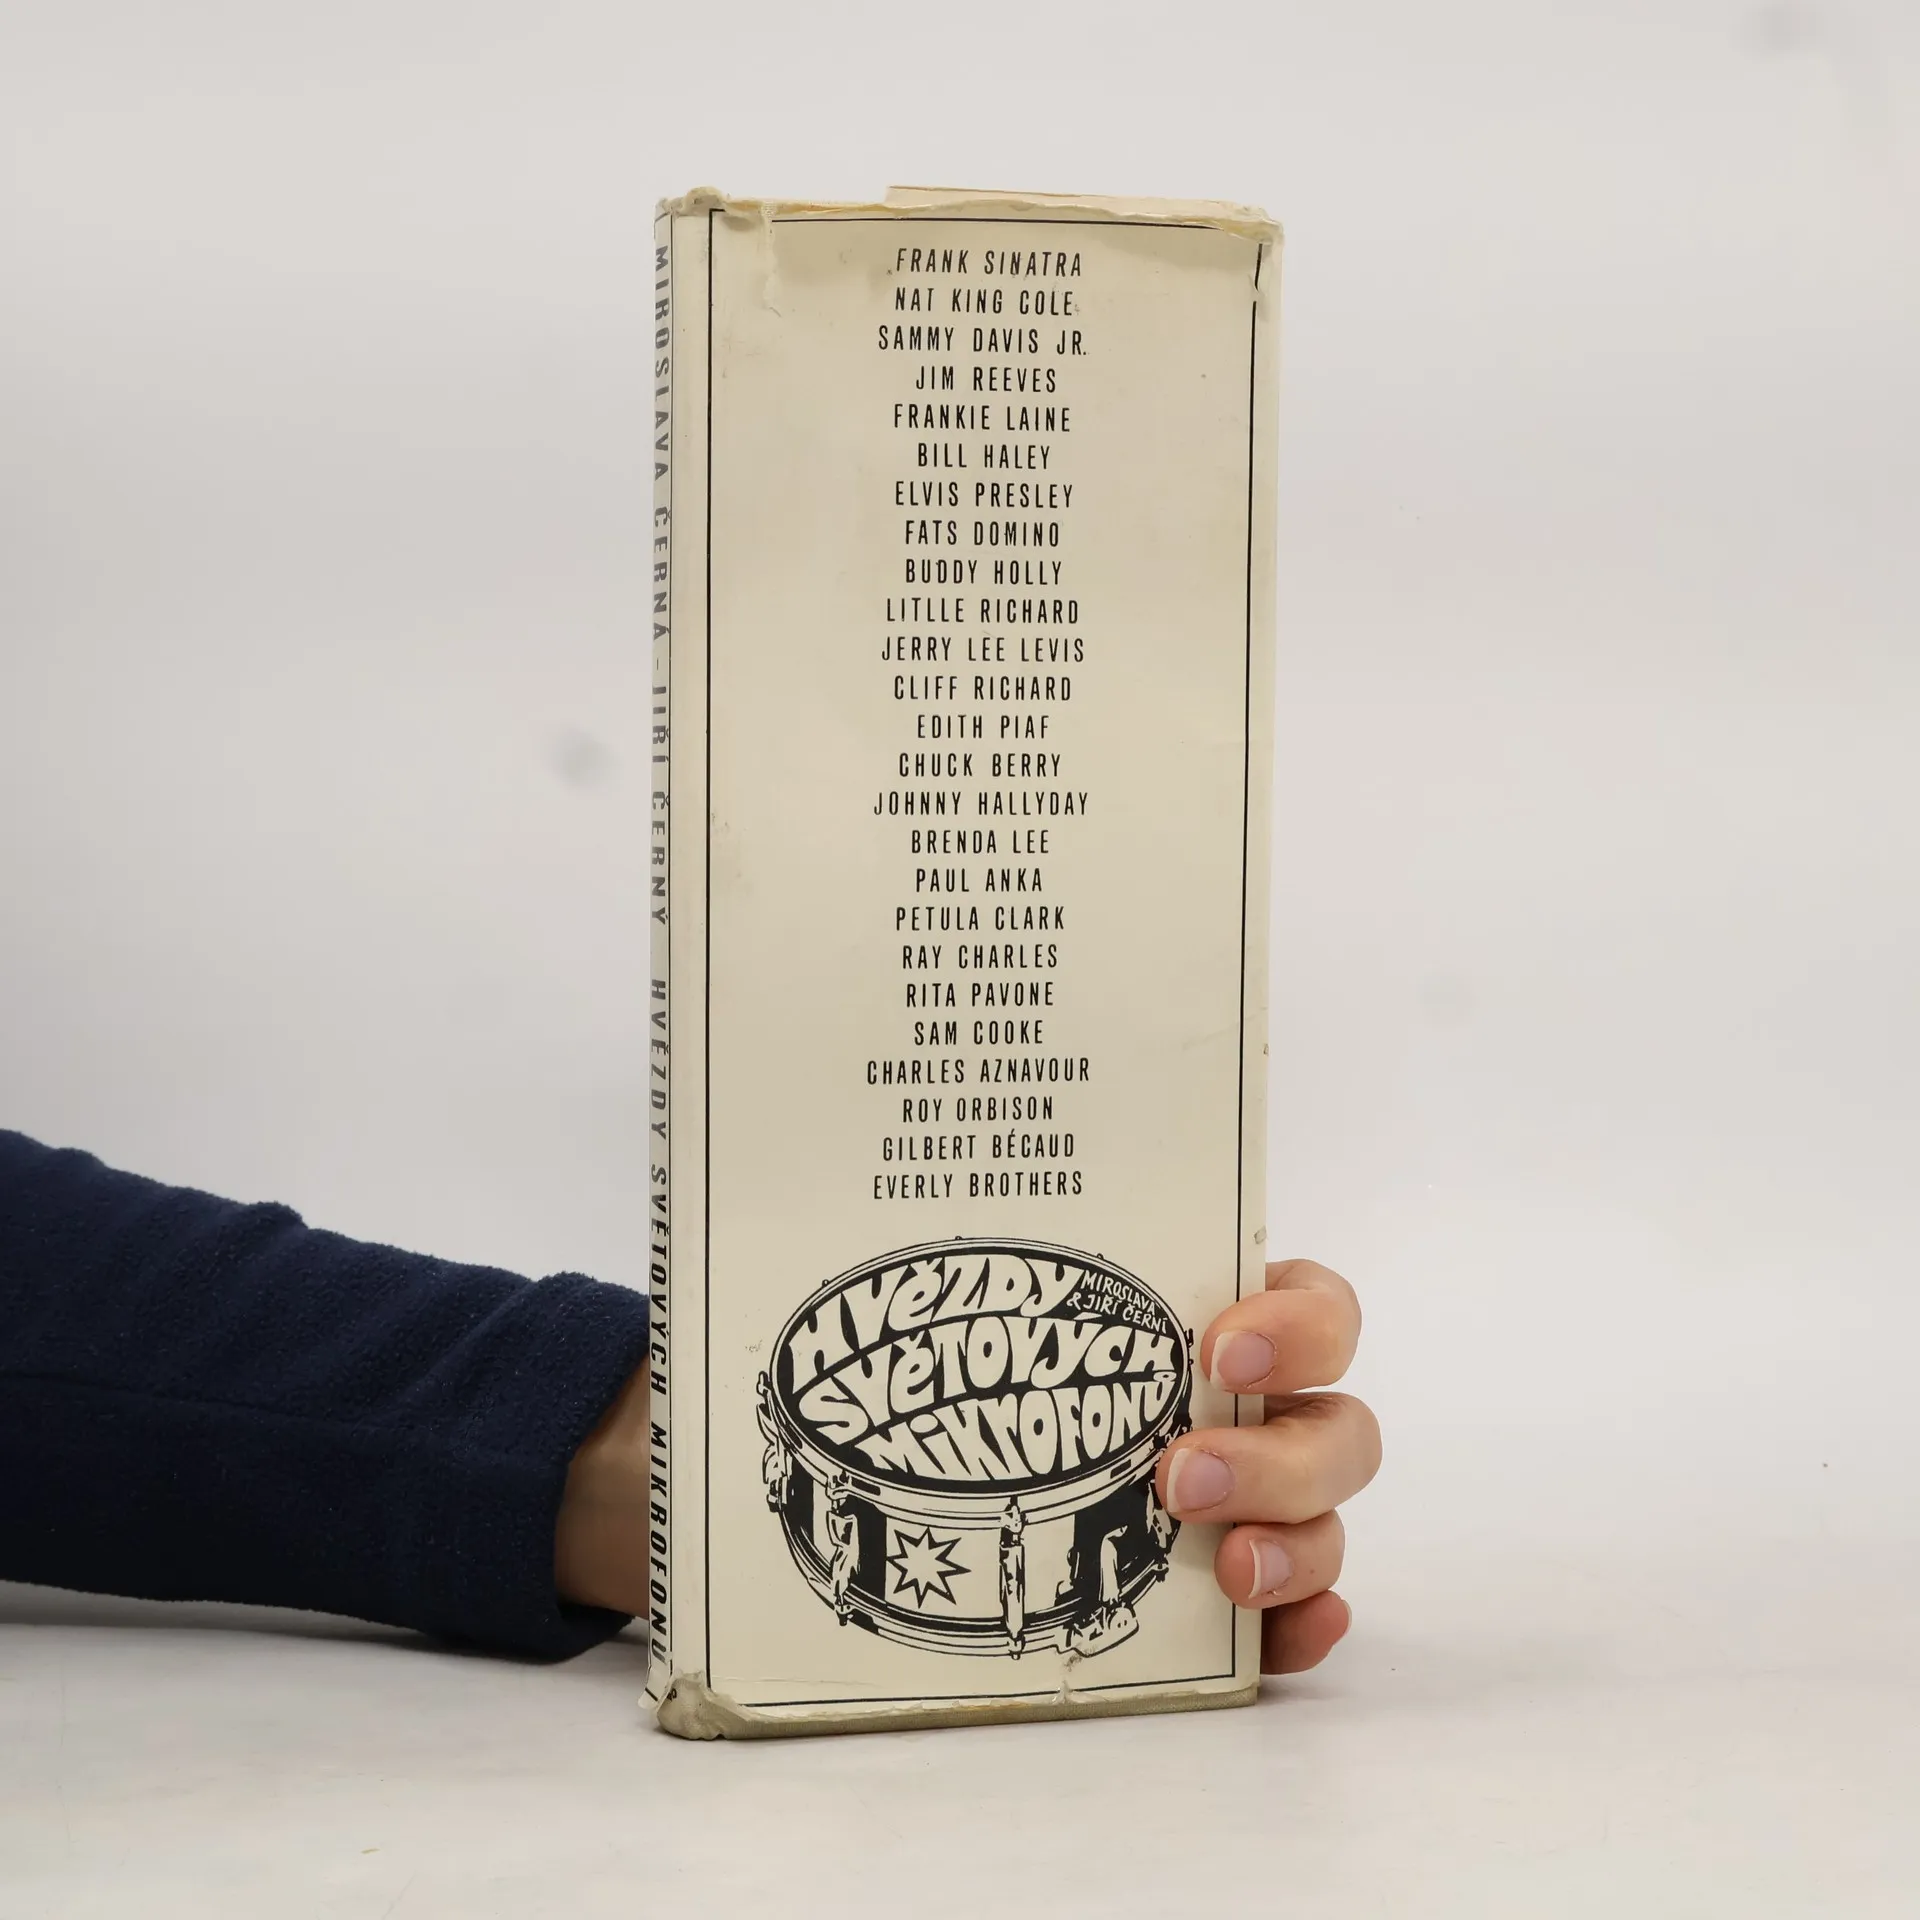 MIROSLAVA ČERNÁ - JIŘÍ ČERNÝ HVĚZDY SVĚTOVÝCH MIKROFONŮ
FRANK SINATRA
NAT KING COLE
SAMMY DAVIS JR.
JIM REEVES
FRANKIE LAINE
BILL HALEY
ELVIS PRESLEY
FATS DOMINO
BUDDY HOLLY
LITLLE RICHARD
JERRY LEE LEVIS
CLIFF RICHARD
EDITH PIAF
CHUCK BERRY
JOHNNY HALLYDAY
BRENDA LEE
PAUL ANKA
PETULA CLARK
RAY CHARLES
RITA PAVONE
SAM COOKE
CHARLES AZNAVOUR
ROY ORBISON
GILBERT BÉCAUD
EVERLY BROTHERS
HVĚZDY
MIROSLAVA
& JIŘÍ ČERNÍ
SVĚTOVÝCH
MIKROFONŮ